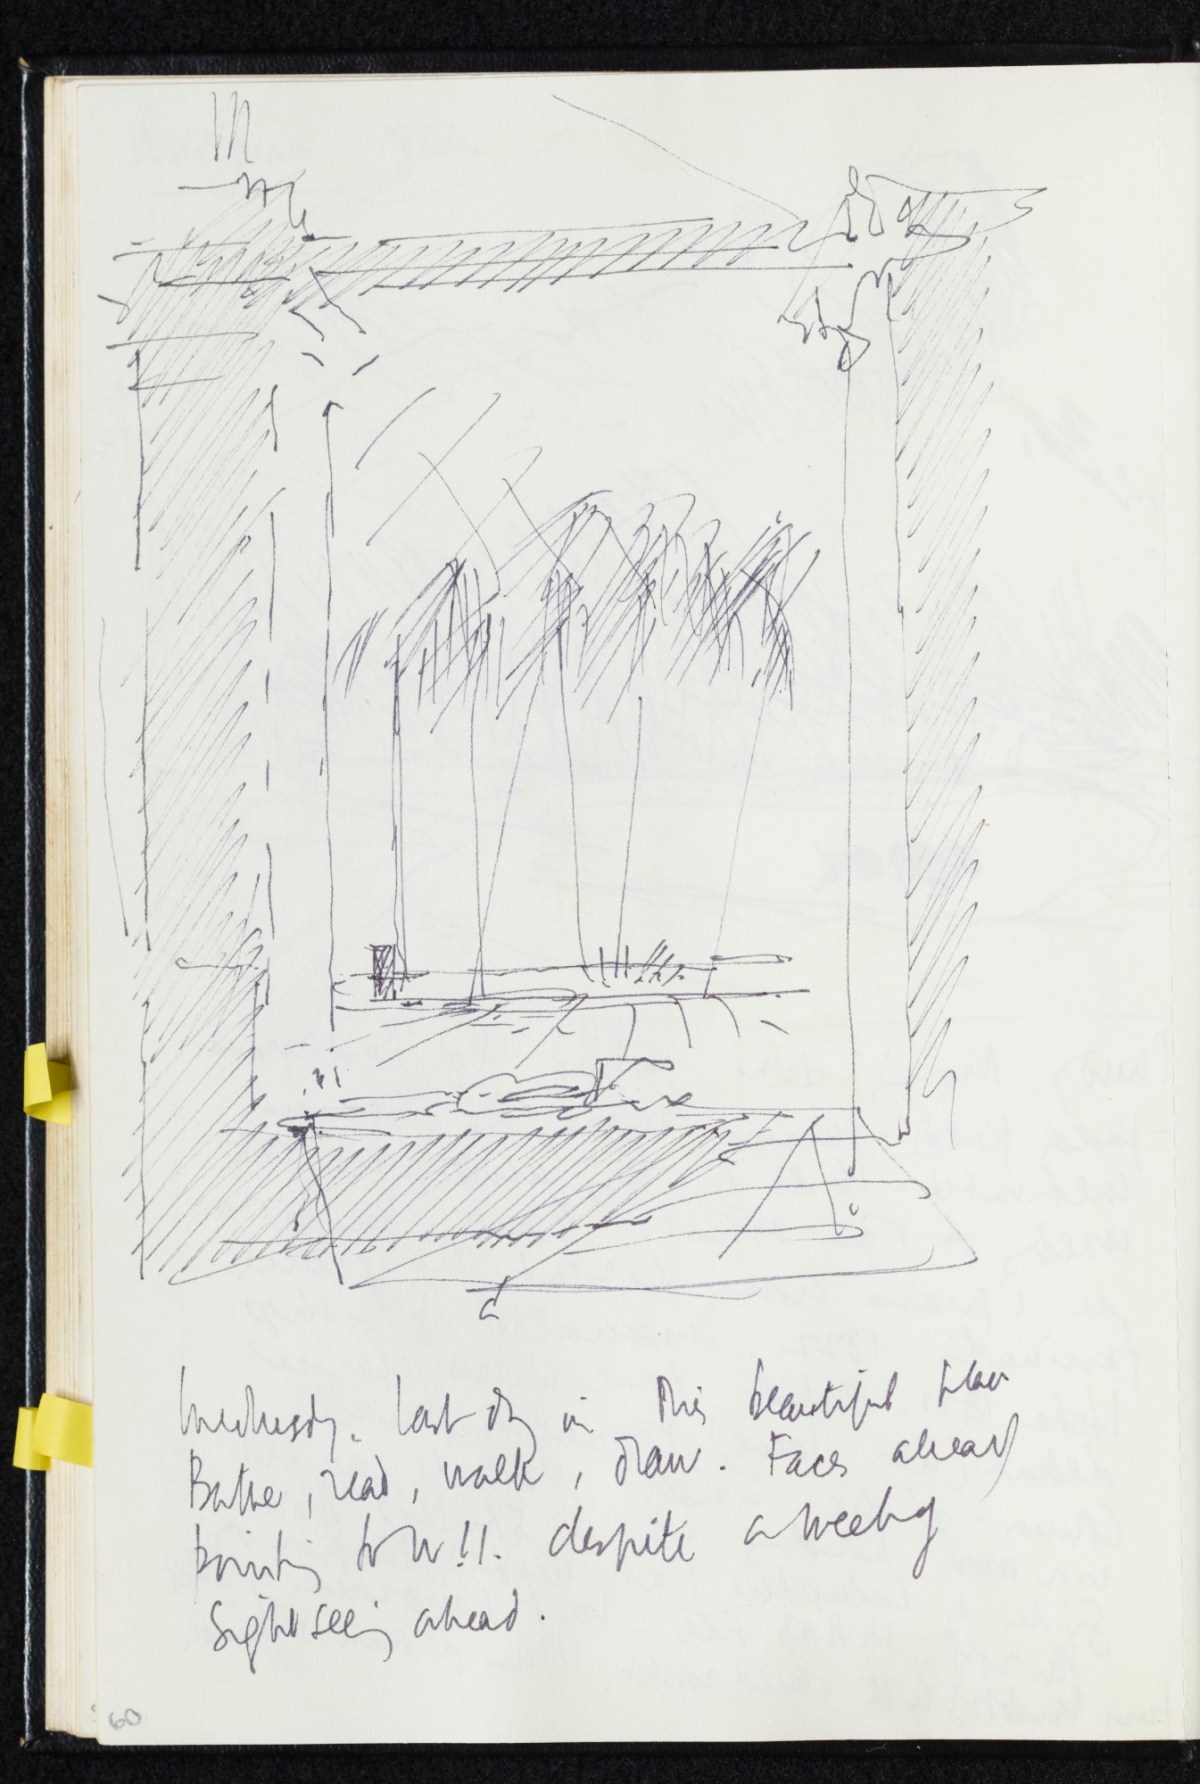 Wednesday. last day in this beautiful place
Bathe, read, walk, draw. Faces ahead
pointing to W!!. despite a week of
Sight seeing ahead.
60